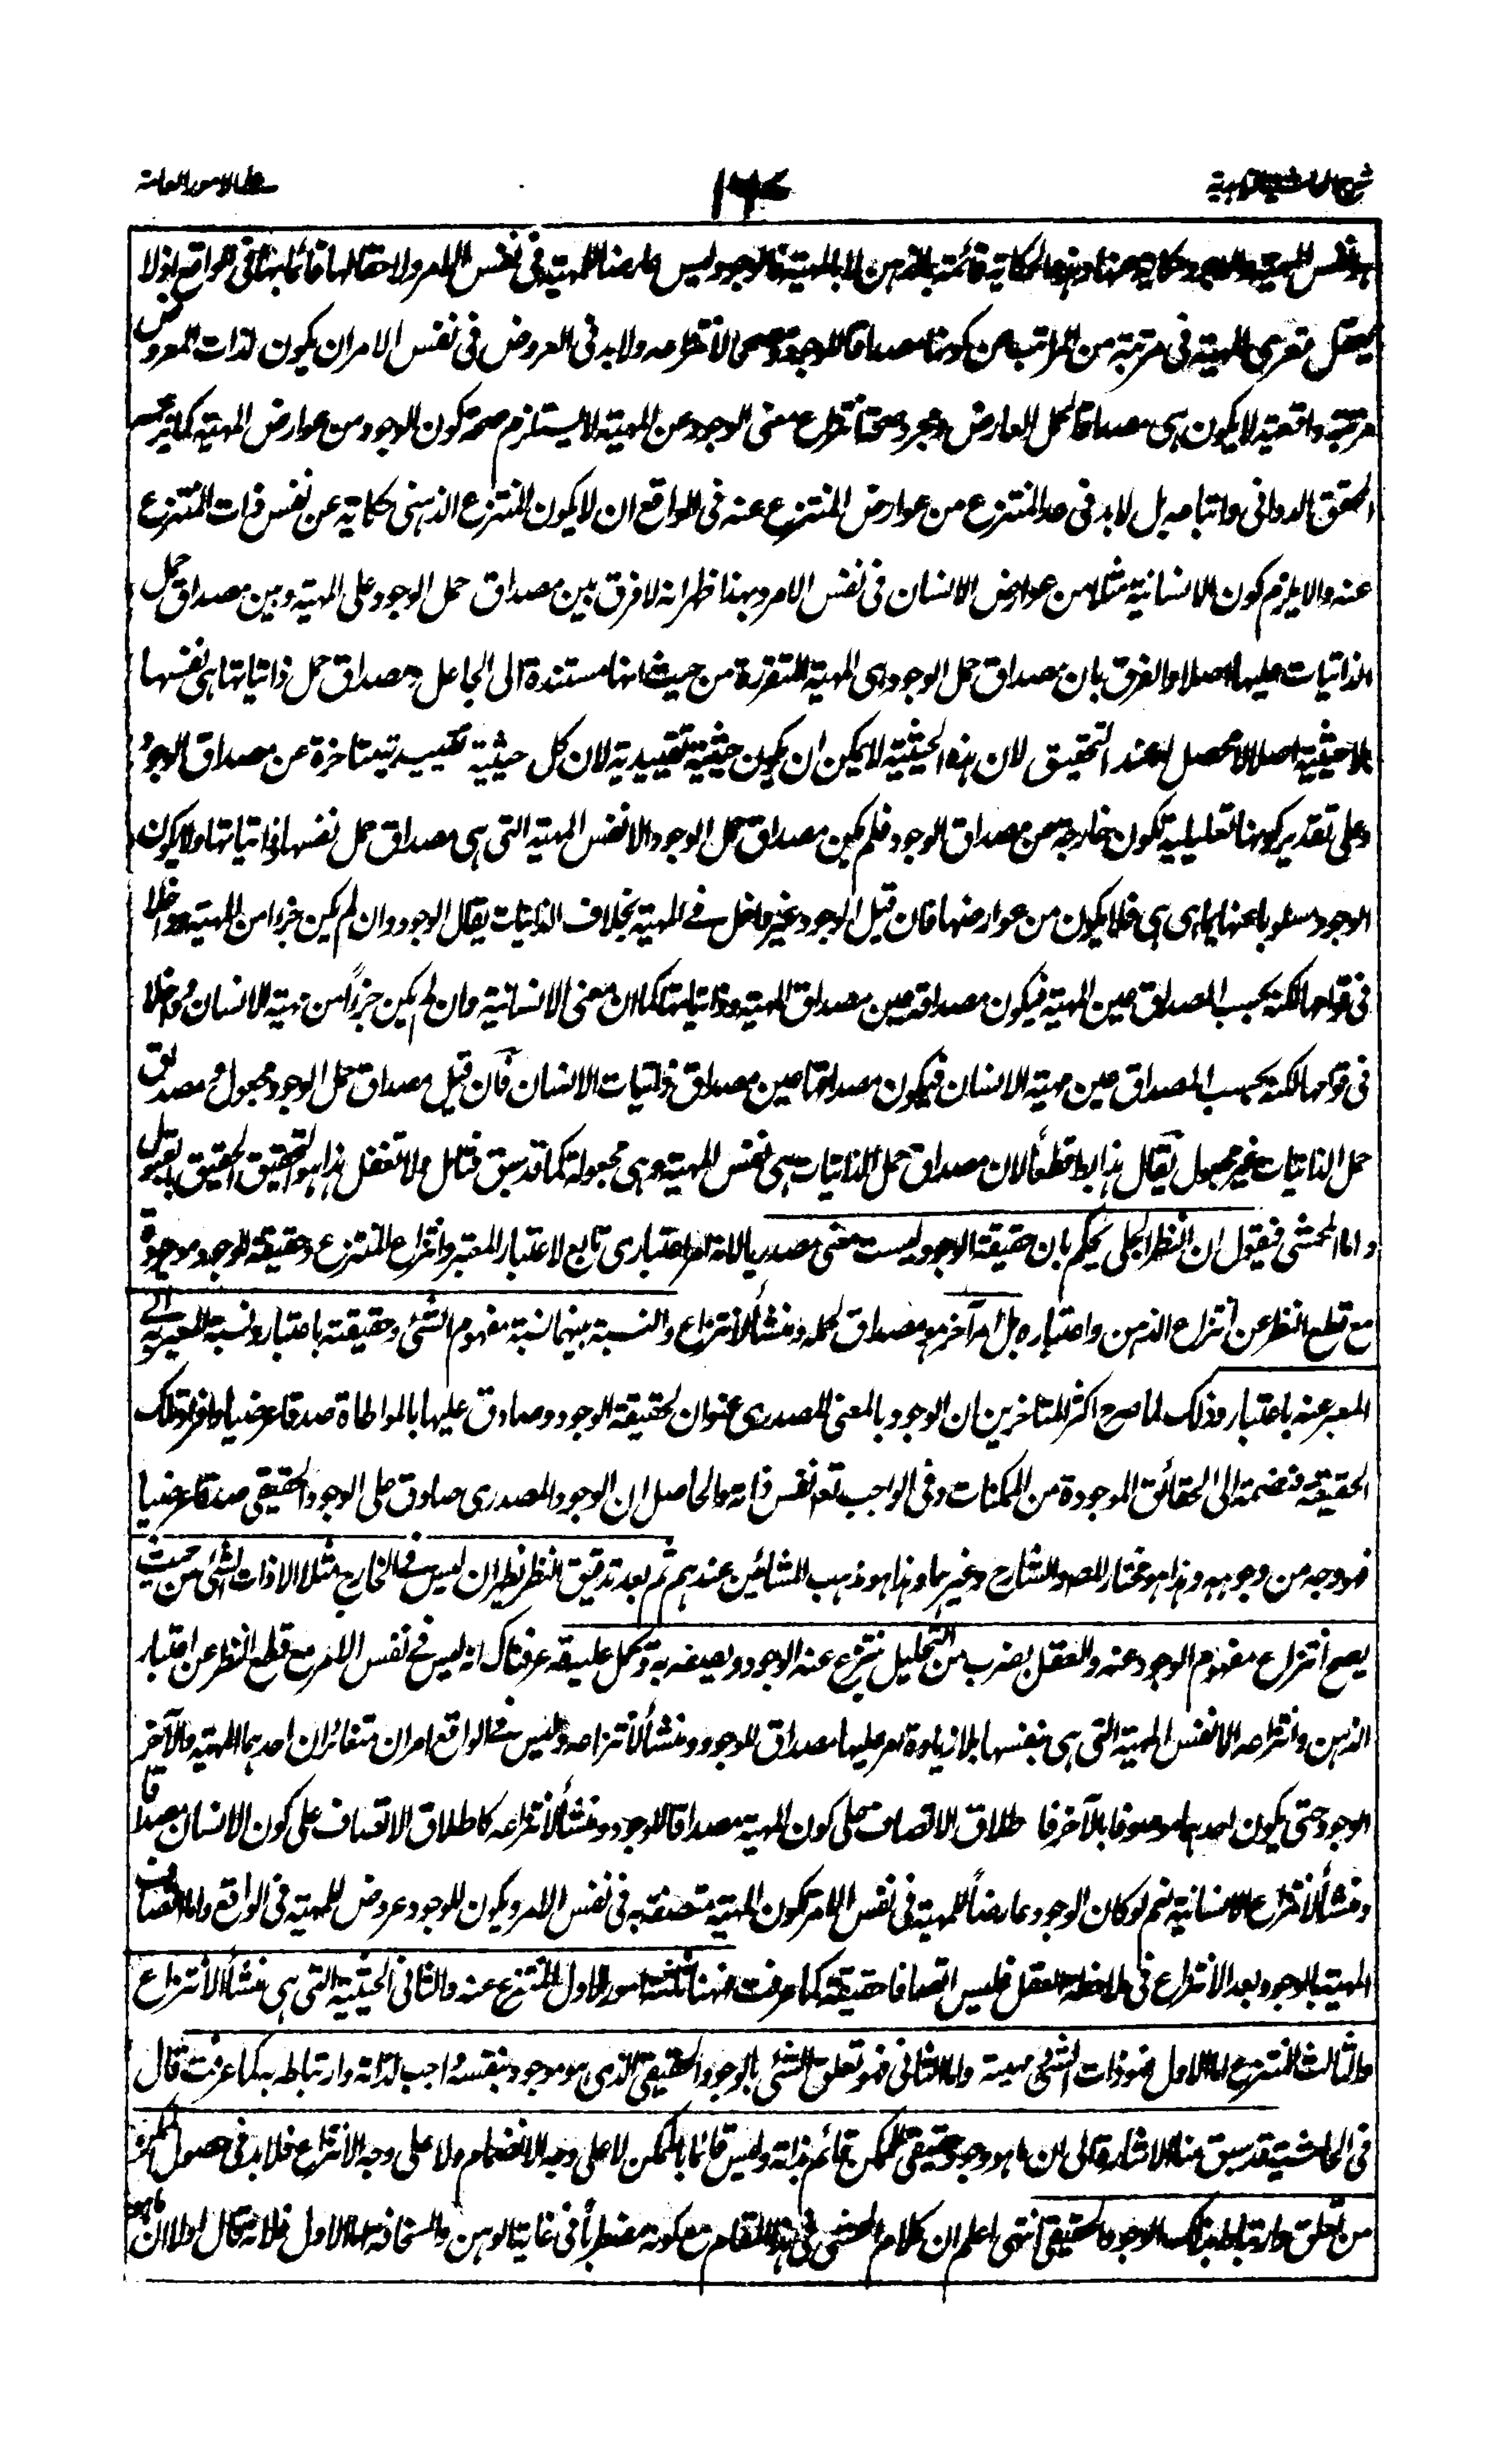 شرح الحاشية الزاهدية
١٢٤
على الامور العامة
نفس المهية والوجود حكاية عنها وهذه الحكاية قائمة بالذهن لا بالمهية فالوجود ليس عارضا للمهية فى نفس الامر ولا حقا لها قائما بها فى الواقع اذ لا
يعقل تعرى المهية فى مرتبة من المراتب عن كونها مصداقا للوجود وصحة لانتزاعه ولا بد فى العروض فى نفس الامر ان يكون لذات المعروض
مرتبة واقعية لا يكون هى مصداقا لحمل العارض ومجرد صحة انتزاع معنى الوجود عن المهية لا يستلزم صحة كون الوجود من عوارض المهية كما زعم
المحقق الدوانى واتباعه بل لا بد فى عد المنتزع من عوارض المنتزع عنه فى الواقع ان لا يكون المنتزع الذهنى حكاية عن نفس ذات المنتزع
عنه والا يلزم كون الانسانية مثلا من عوارض الانسان فى نفس الامر وبهذا ظهر انه لا فرق بين مصداق حمل الوجود على المهية وبين مصداق حمل
الذاتيات عليها اصلا والفرق بان مصداق حمل الوجود هى المهية المتقررة من حيث انها مستندة الى الجاعل ومصداق حمل ذاتياتها هى نفسها
بلا حيثية اصلا لا محصل له عند التحقيق لان هذه الحيثية لا يمكن ان يكون حيثية تقييدية لان كل حيثية تقييدية متاخرة عن مصداق الوجود
وعلى تقدير كونها تعليلية تكون خارجة عن مصداق الوجود فلم يكن مصداق حمل الوجود الا نفس المهية التى هى مصداق حمل نفسها وذاتياتها ولا يكون
الوجود مسلوبا عنها بما هى هى فلا يكون من عوارضها فان قيل الوجود غير داخل فى المهية بخلاف الذاتيات يقال الوجود وان لم يكن جزءا من المهية وداخلا
فى قوامها لكنه بحسب المصداق عين المهية فيكون مصداقه عين مصداق المهية وذاتياتها كما ان معنى الانسانية وان لم يكن جزءاً من مهية الانسان وداخلا
فى قوامها لكنه بحسب المصداق عين مهية الانسان فيكون مصداقها عين مصداق ذاتيات الانسان فان قيل مصداق حمل الوجود مجعول ومصداق
حمل الذاتيات غير مجعول يقال هذا باطل قطعاً لان مصداق حمل الذاتيات هى نفس المهية وهى مجعولة كما قد سبق فتامل ولا تغفل هذا هو التحقيق الحقيق بالقبول
واما المحشى فيقول ان النظر الجلى يحكم بان حقيقة الوجود ليست معنى مصدريا لانه امر اعتبارى تابع لاعتبار المعتبر وانتزاع المنتزع وحقيقة الوجود موجودة
مع قطع النظر عن انتزاع الذهن واعتباره بل امر آخر هو مصداق لحمله ومنشأ لانتزاع والنسبة بينهما نسبة مفهوم الشئ وحقيقته باعتبار ونسبة المعبر به الى
المعبر عنه باعتبار وذلك لما صرح اكثر المتاخرين ان الوجود بالمعنى المصدرى عنوان لحقيقة الوجود وصادق عليها بالمواطاة صدقا عرضيا وافراد تلك
الحقيقة منضمة الى الحقائق الموجودة من الممكنات وفى الواجب تعم نفس ذاته والحاصل ان الوجود المصدرى صادق على الوجود الحقيقى صدقا عرضيا
فهو وجه من وجوهه وهذا هو مختار المصه والشارح وغيرهما وهذا هو مذهب المشائين عندهم ثم بعد تدقيق النظر يظهر ان ليس فى الخارج مثلا الا ذات الشئ من حيث
يصح انتزاع مفهوم الوجود عنه والعقل بضرب من التحليل ينتزع عنه الوجود ويصفه به ويحمل عليه قد عرفناك انه ليس فى نفس الامر مع قطع النظر عن اعتبار
الذهن وانتزاعه الا نفس المهية التى هى بنفسها بلا زيادة امر عليها مصداق للوجود ومنشأ لانتزاعه وليس فى الواقع امران متغائران احدهما المهية والآخر
الوجود حتى يكون احدهما موصوفا بالآخر فاطلاق الاتصاف على كون المهية مصداقا للوجود ومنشأ لانتزاعه كاطلاق الاتصاف على كون الانسان مصداقا
ومنشأ لانتزاع الانسانية نعم لو كان الوجود عارضاً للمهية فى نفس الامر تكون المهية متصفة به فى نفس الامر ويكون للوجود عروض للمهية فى الواقع واما اتصاف
المهية بالوجود بعد الانتزاع فى ملاحظة العقل فليس اتصافا حقيقة كما عرفت فههنا ثلثة امور الاول المنتزع عنه والثانى الحيثية التى هى منشأ الانتزاع
والثالث المنتزع اما الاول فهو ذات الشئ ومهيته واما الثانى فهو تعلق الشئ بالوجود الحقيقى الذى هو موجود بنفسه واجب لذاته وارتباطه به كما عرفت قال
فى الحاشية قد سبق منا الاشارة الى ان ما هو وجود حقيقى للممكن قائم بذاته وليس قائما بالممكن لا على وجه الانضمام ولا على وجه الانتزاع فلا بد فى حصول
من تعلق وارتباط بذلك الوجود الحقيقى انتهى اعلم ان كلام المحشى فى هذا المقام مع كونه مضطرباً فى غاية الوهن والسخافة اما الاول فلانه قال اولا ان